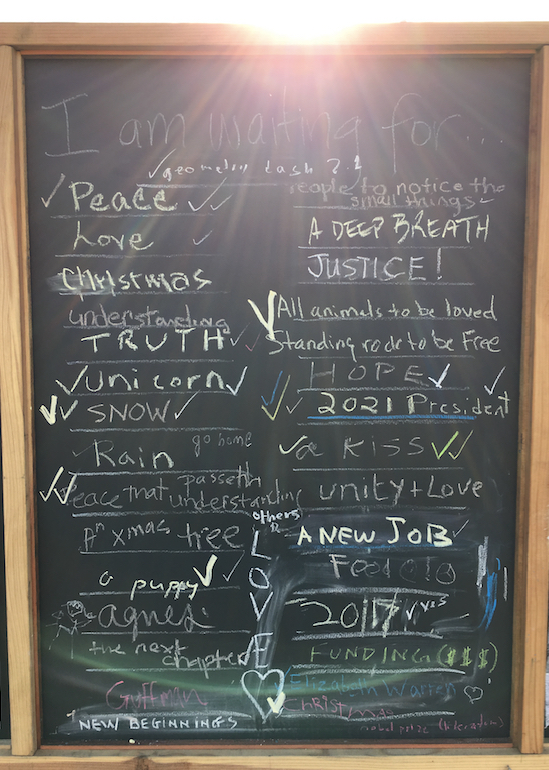 I am waiting for...
geometry dash 2.2
Peace
Love
Christmas
understanding
TRUTH
unicorn
SNOW
go home
Rain
Peace that passeth
understanding
An xmas tree
a puppy
agnes
the next
chapter
Guffman
NEW BEGINNINGS
others
LOVE
People to notice the
small things
A DEEP BREATH
JUSTICE!
All animals to be loved
Standing rock to be Free
HOPE
2021 President
a KISS
unity + Love
A NEW JOB
2017
FUNDING ($$$)
Elizabeth Warren
Christmas
nobel prize